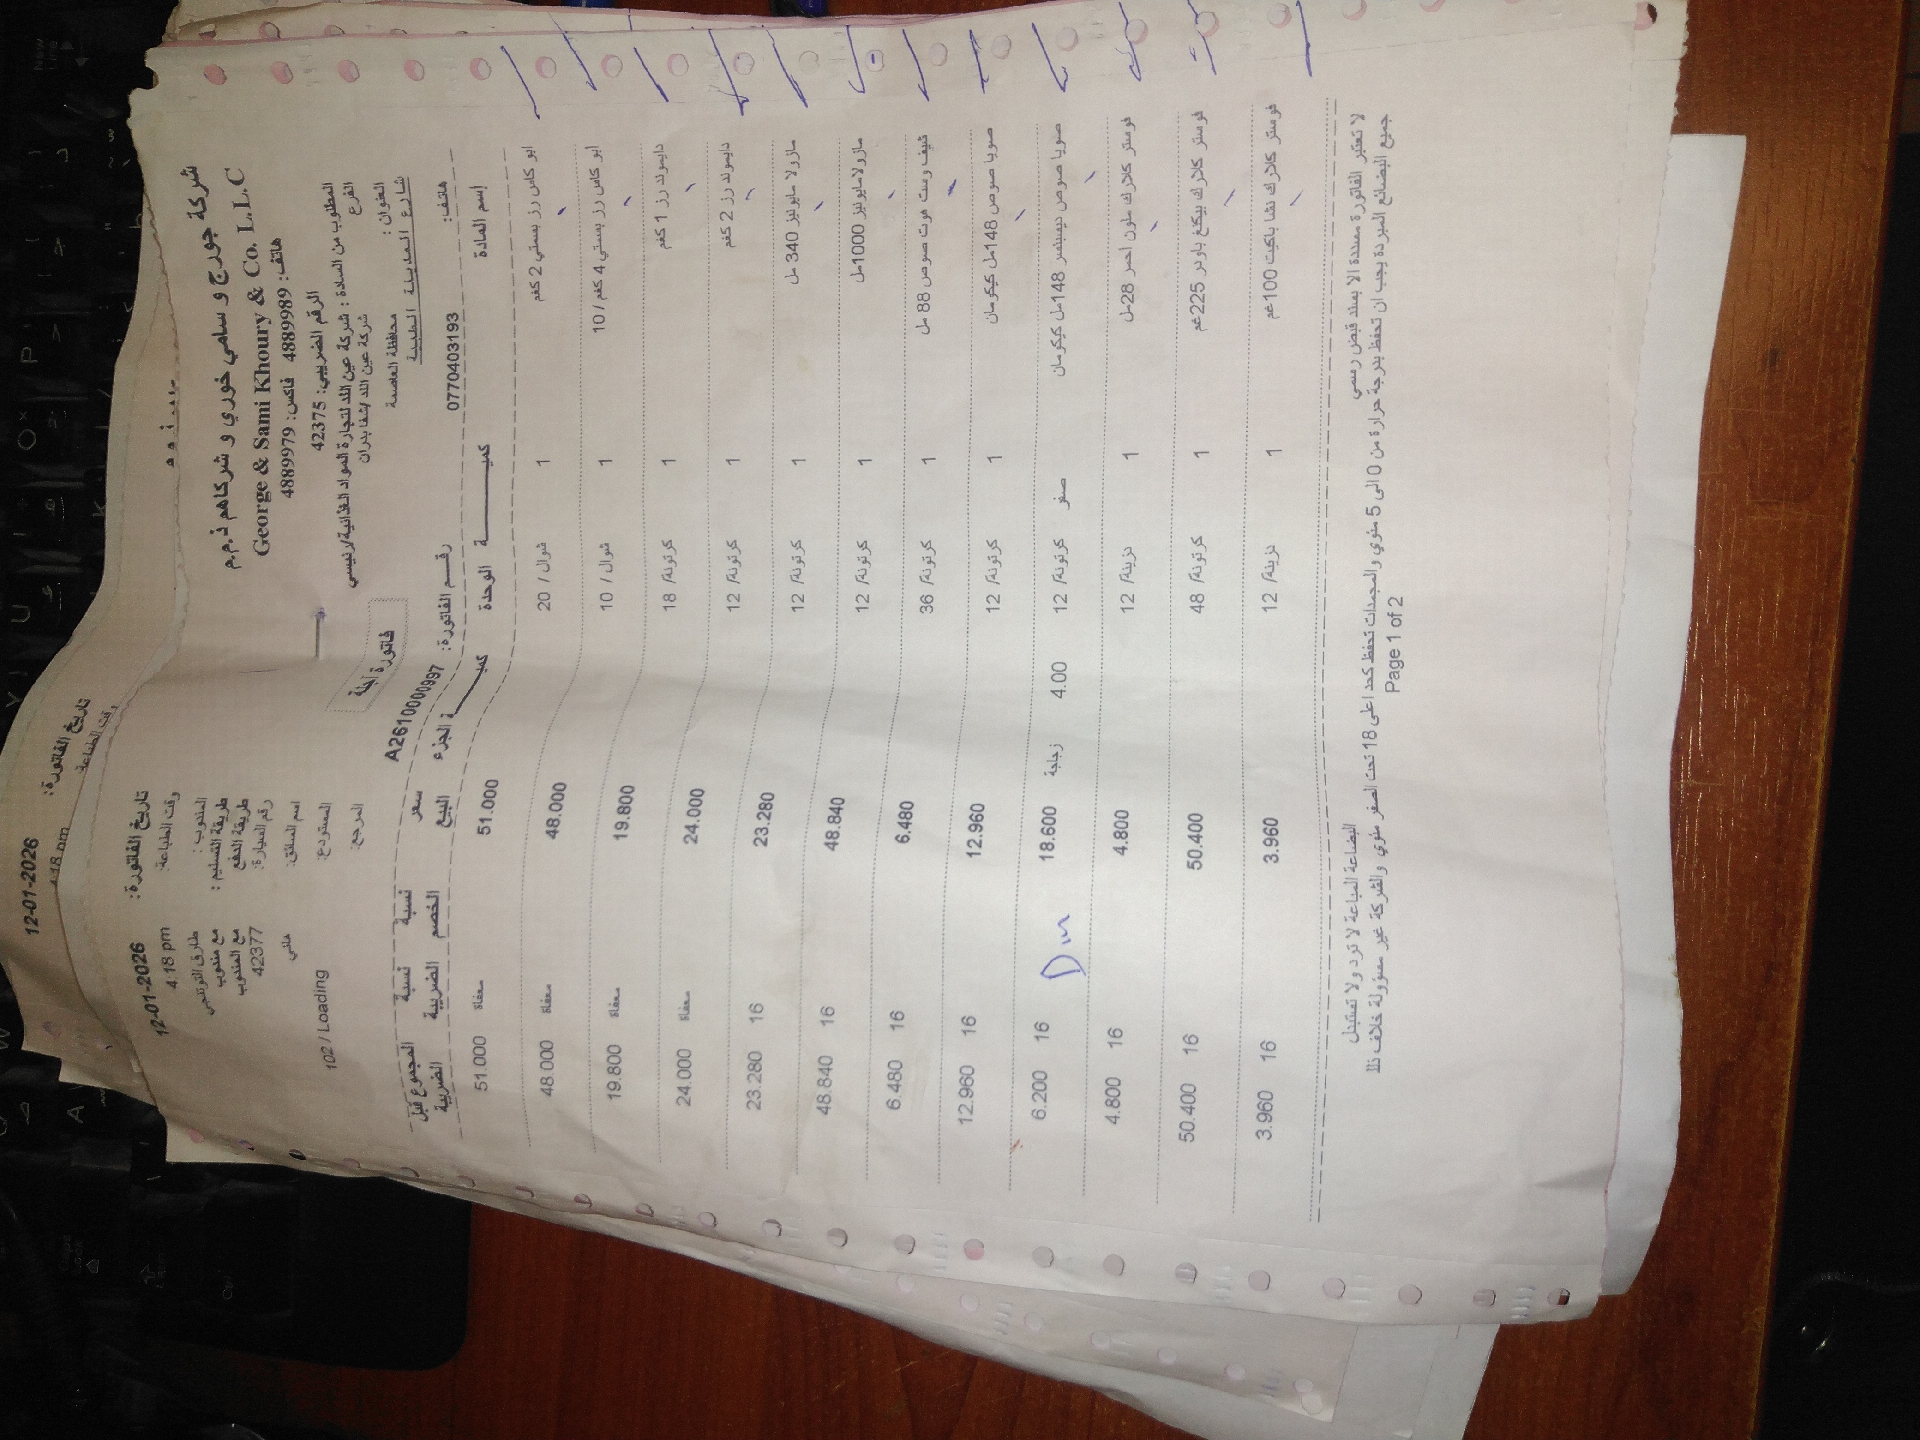 12-01-2026 تاريخ الفاتورة:
4:18 pm وقت الطباعة:
شركة جورج و سامي خوري و شركاهم ذ.م.م
George & Sami Khoury & Co. L.L.C
هاتف: 4889989 فاكس: 4889979
الرقم الضريبي: 42375
المطلوب من السادة : شركة عين اللد لتجارة المواد الغذائية/رئيسي
الفرع شركة عين اللد/شفا بدران
العنوان : محافظة العاصمة
شارع المدينة الطبية
هاتف: 0770403193
تاريخ الفاتورة: 12-01-2026
وقت الطباعة: 4:18 pm
المندوب :
طريقة التسليم : مع مندوب
طريقة الدفع مع المندوب
رقم السيارة: 42377
اسم السائق: هاني
المستودع: 102 / Loading
المرجع:
فاتورة آجلة
رقم الفاتورة: A2610000997
إسم المادة كميـة الوحدة كميـة الجزء سعر البيع نسبة الخصم نسبة الضريبة المجموع قبل الضريبة
ابو كاس رز بسمتي 2 كغم 1 شوال / 20 51.000 معفاة 51.000
ابو كاس رز بسمتي 4 كغم / 10 1 شوال / 10 48.000 معفاة 48.000
دايموند رز 1 كغم 1 كرتونة/ 18 19.800 معفاة 19.800
دايموند رز 2 كغم 1 كرتونة/ 12 24.000 معفاة 24.000
مازولا مايونيز 340 مل 1 كرتونة/ 12 23.280 16 23.280
مازولا مايونيز 1000مل 1 كرتونة/ 12 48.840 16 48.840
شيف ومنت هوت صوص 88 مل 1 كرتونة/ 36 6.480 16 6.480
صويا صوص 148مل كيكومان 1 كرتونة/ 12 12.960 16 12.960
صويا صوص 148مل كيكومان صفر كرتونة/ 12 4.00 زجاجة 18.600 16 6.200
فوستر كلارك ملون احمر 28مل 1 دزينة/ 12 4.800 16 4.800
فوستر كلارك بيكنغ باودر 225غم 1 كرتونة/ 48 50.400 16 50.400
فوستر كلارك نشا باكيت 100غم 1 دزينة/ 12 3.960 16 3.960
لا تعتبر الفاتورة مسددة الا بسند قبض رسمي البضاعة المباعة لا ترد ولا تستبدل
جميع البضائع المبردة يجب ان تحفظ بدرجة حرارة من 0 الى 5 مئوي والمجمدات تحفظ كحد اعلى 18 تحت الصفر مئوي والشركة غير مسؤولة خلاف ذلك
Page 1 of 2